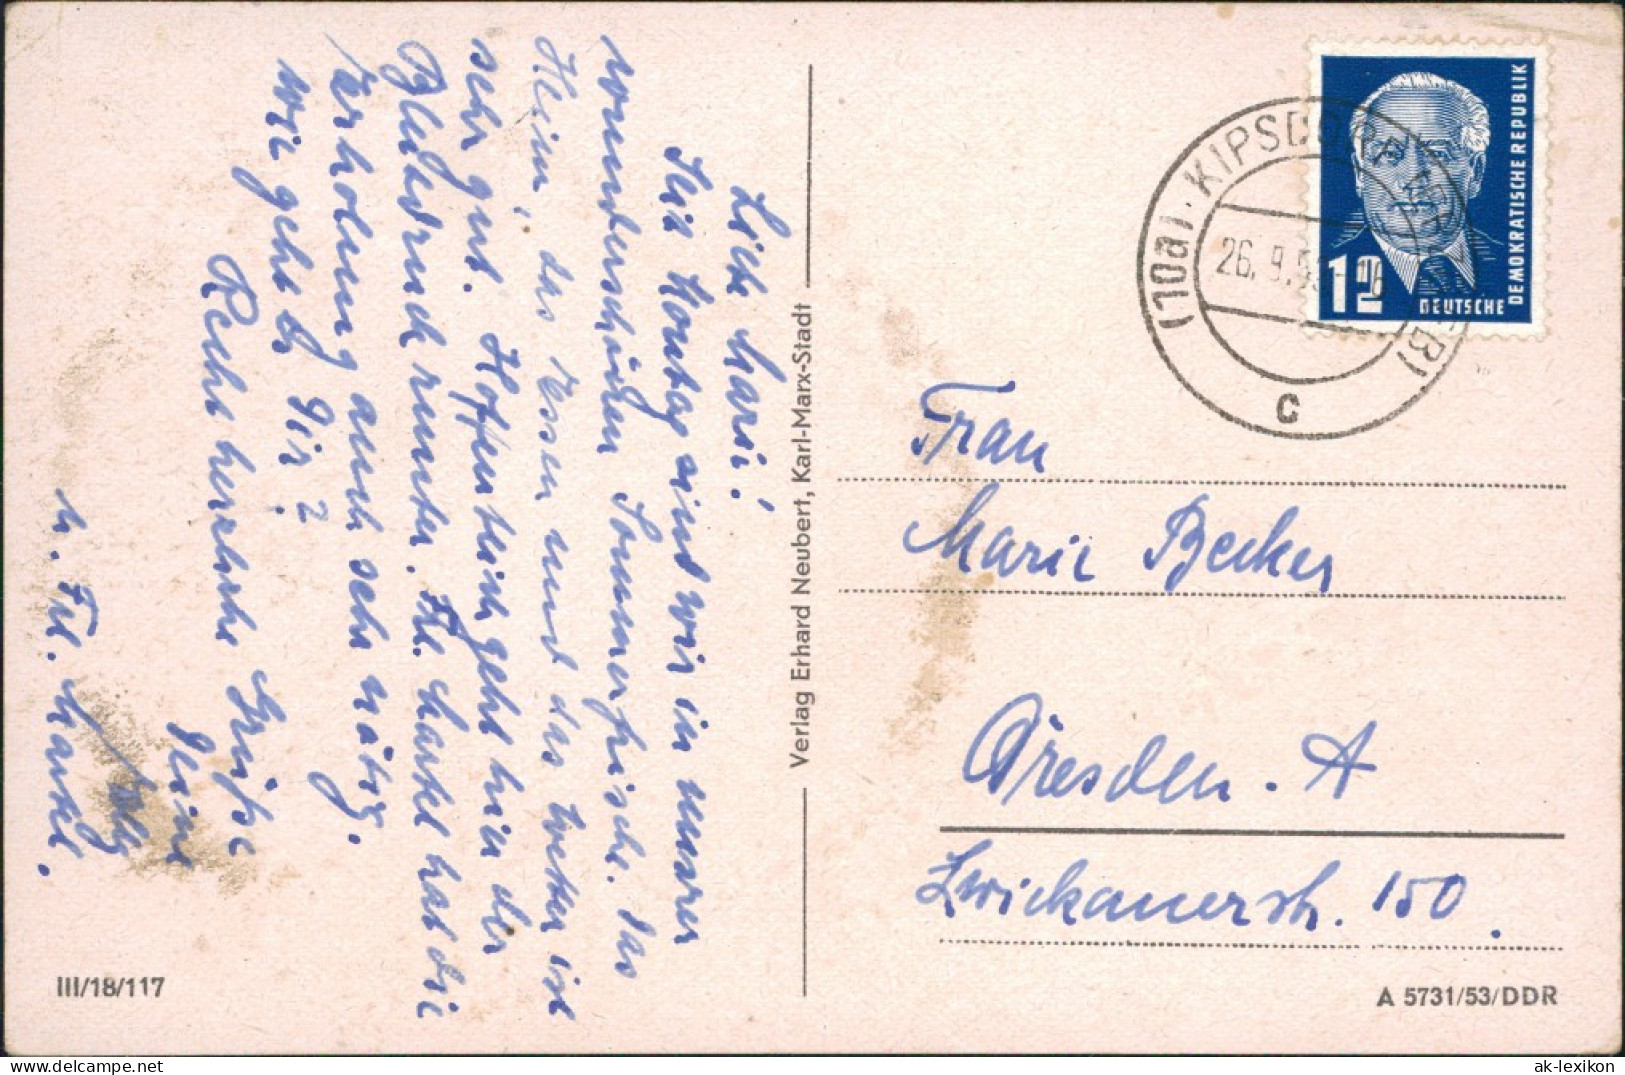 Liebe Marie!
Seit Montag sind wir in unsrer
wunderschönen Sommerfrische. Das
Heim, das Essen und das Wetter ist
sehr gut. Hoffentlich geht hier der
Blutdruck runter. Frl. Martel hat die
Erholung auch sehr nötig.
Wie geht es Dir?
Recht herzliche Grüße
Deine
u. Frl. Martel.
Verlag Erhard Neubert, Karl-Marx-Stadt
III/18/117
(10a) KIPSDORF (ERZGEB)
26. 9. 5
c
12
DEUTSCHE
DEMOKRATISCHE REPUBLIK
Frau
Marie Becker
Dresden-A
Zwickauerstr. 150.
A 5731/53/DDR
ak-lexikon